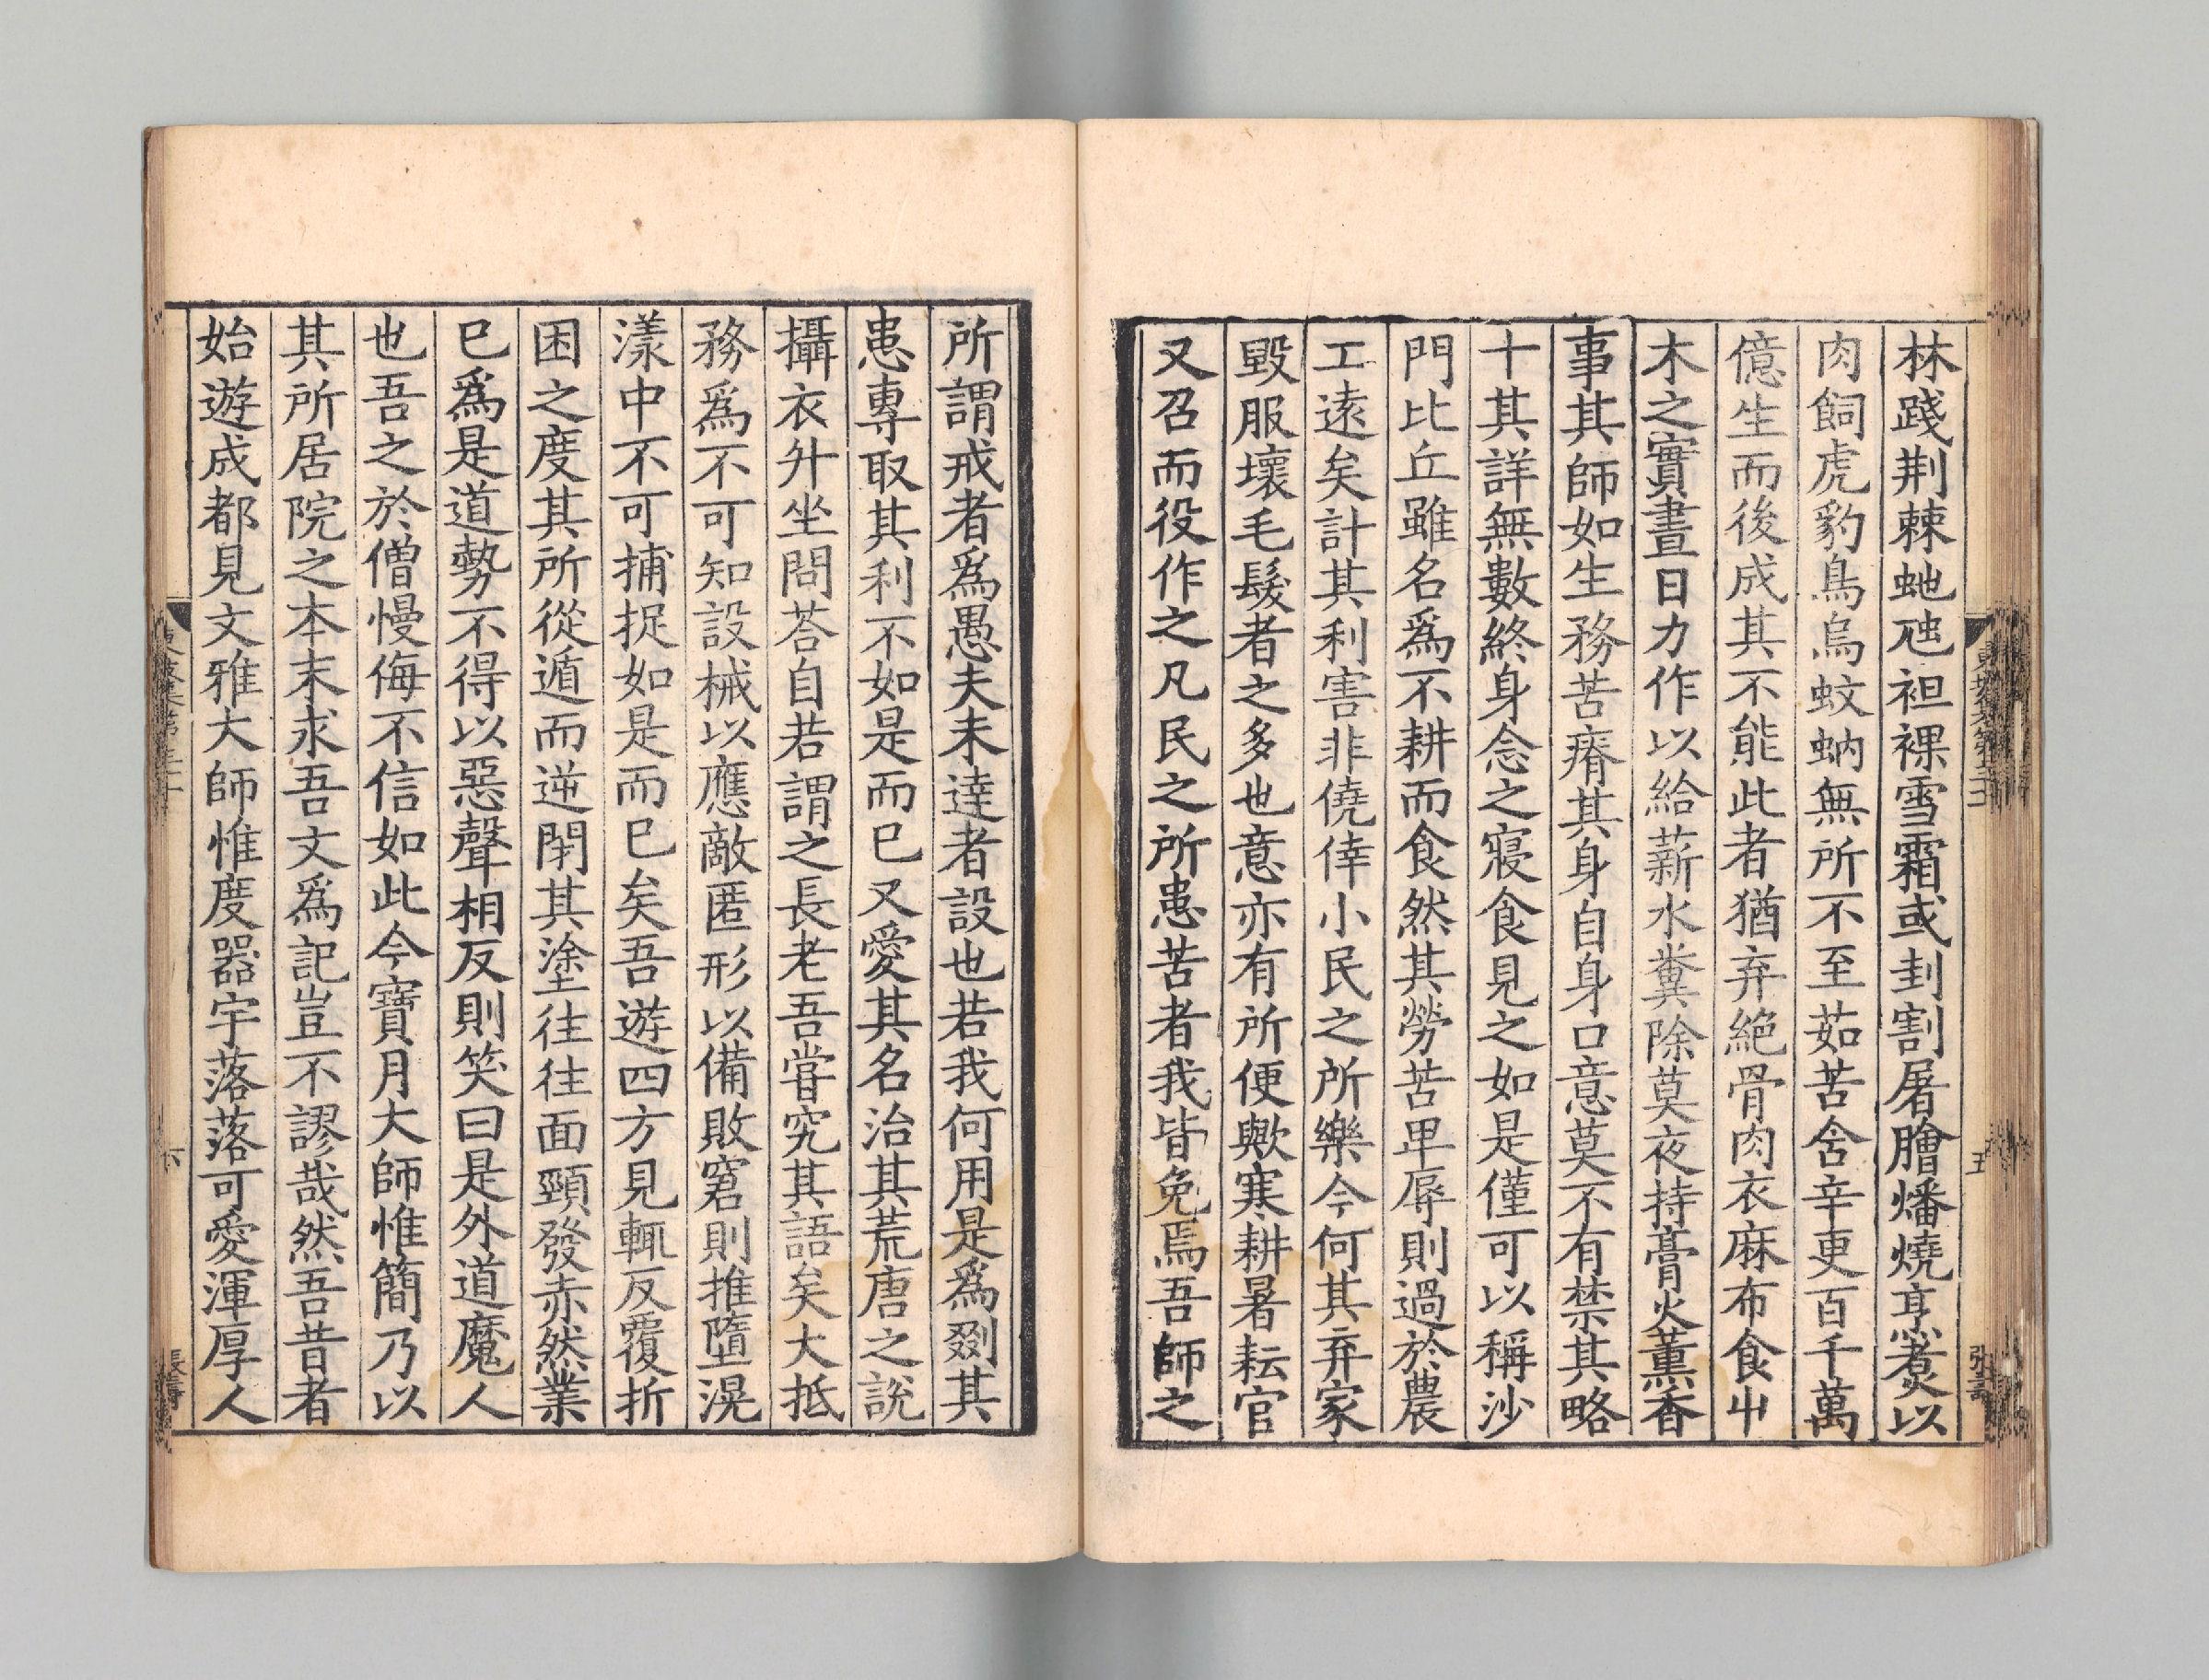 林踐荆棘虵虺袒裸雪霜或刲割屠膾燔燒烹煑以
肉飼虎豹鳥烏蚊蚋無所不至茹苦含辛更百千萬
億生而後成其不能此者猶弃絶骨肉衣麻布食屮
木之實晝日力作以給薪水糞除莫夜持膏火薰香
事其師如生務苦瘠其身自身口意莫不有禁其略
十其詳無數終身念之寢食見之如是僅可以稱沙
門比丘雖名爲不耕而食然其勞苦卑辱則過於農
工逺矣計其利害非僥倖小民之所樂今何其弃家
毀服壞毛髮者之多也意亦有所便歟寒耕暑耘官
又召而役作之凡民之所患苦者我皆免焉吾師之
所謂戒者爲愚夫未達者設也若我何用是爲剟其
患專取其利不如是而巳又愛其名治其荒唐之說
攝衣升坐問荅自若謂之長老吾嘗究其語矣大抵
務爲不可知設械以應敵匿形以備敗窘則推墮滉
漾中不可捕捉如是而巳矣吾遊四方見輒反覆折
困之度其所從遁而逆閉其塗往往面頸發赤然業
巳爲是道勢不得以惡聲相反則笑曰是外道魔人
也吾之於僧慢侮不信如此今寶月大師惟簡乃以
其所居院之本末求吾文爲記豈不謬哉然吾昔者
始遊成都見文雅大師惟度器宇落落可愛渾厚人